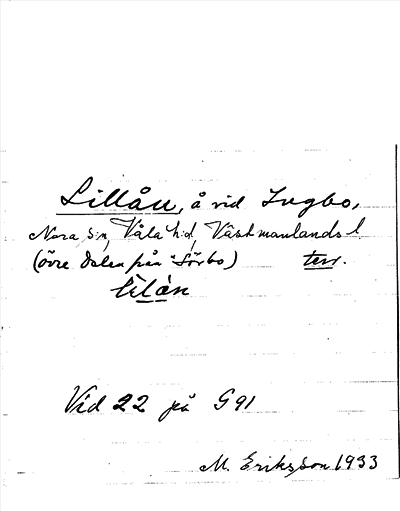 Lillån, å vid Ingbo,
Nora sn, Våla hd, Västmanlands l
(övre delen från Sörbo) terr.
lìlàn
Vid 22 på G 91
M. Eriksson 1933